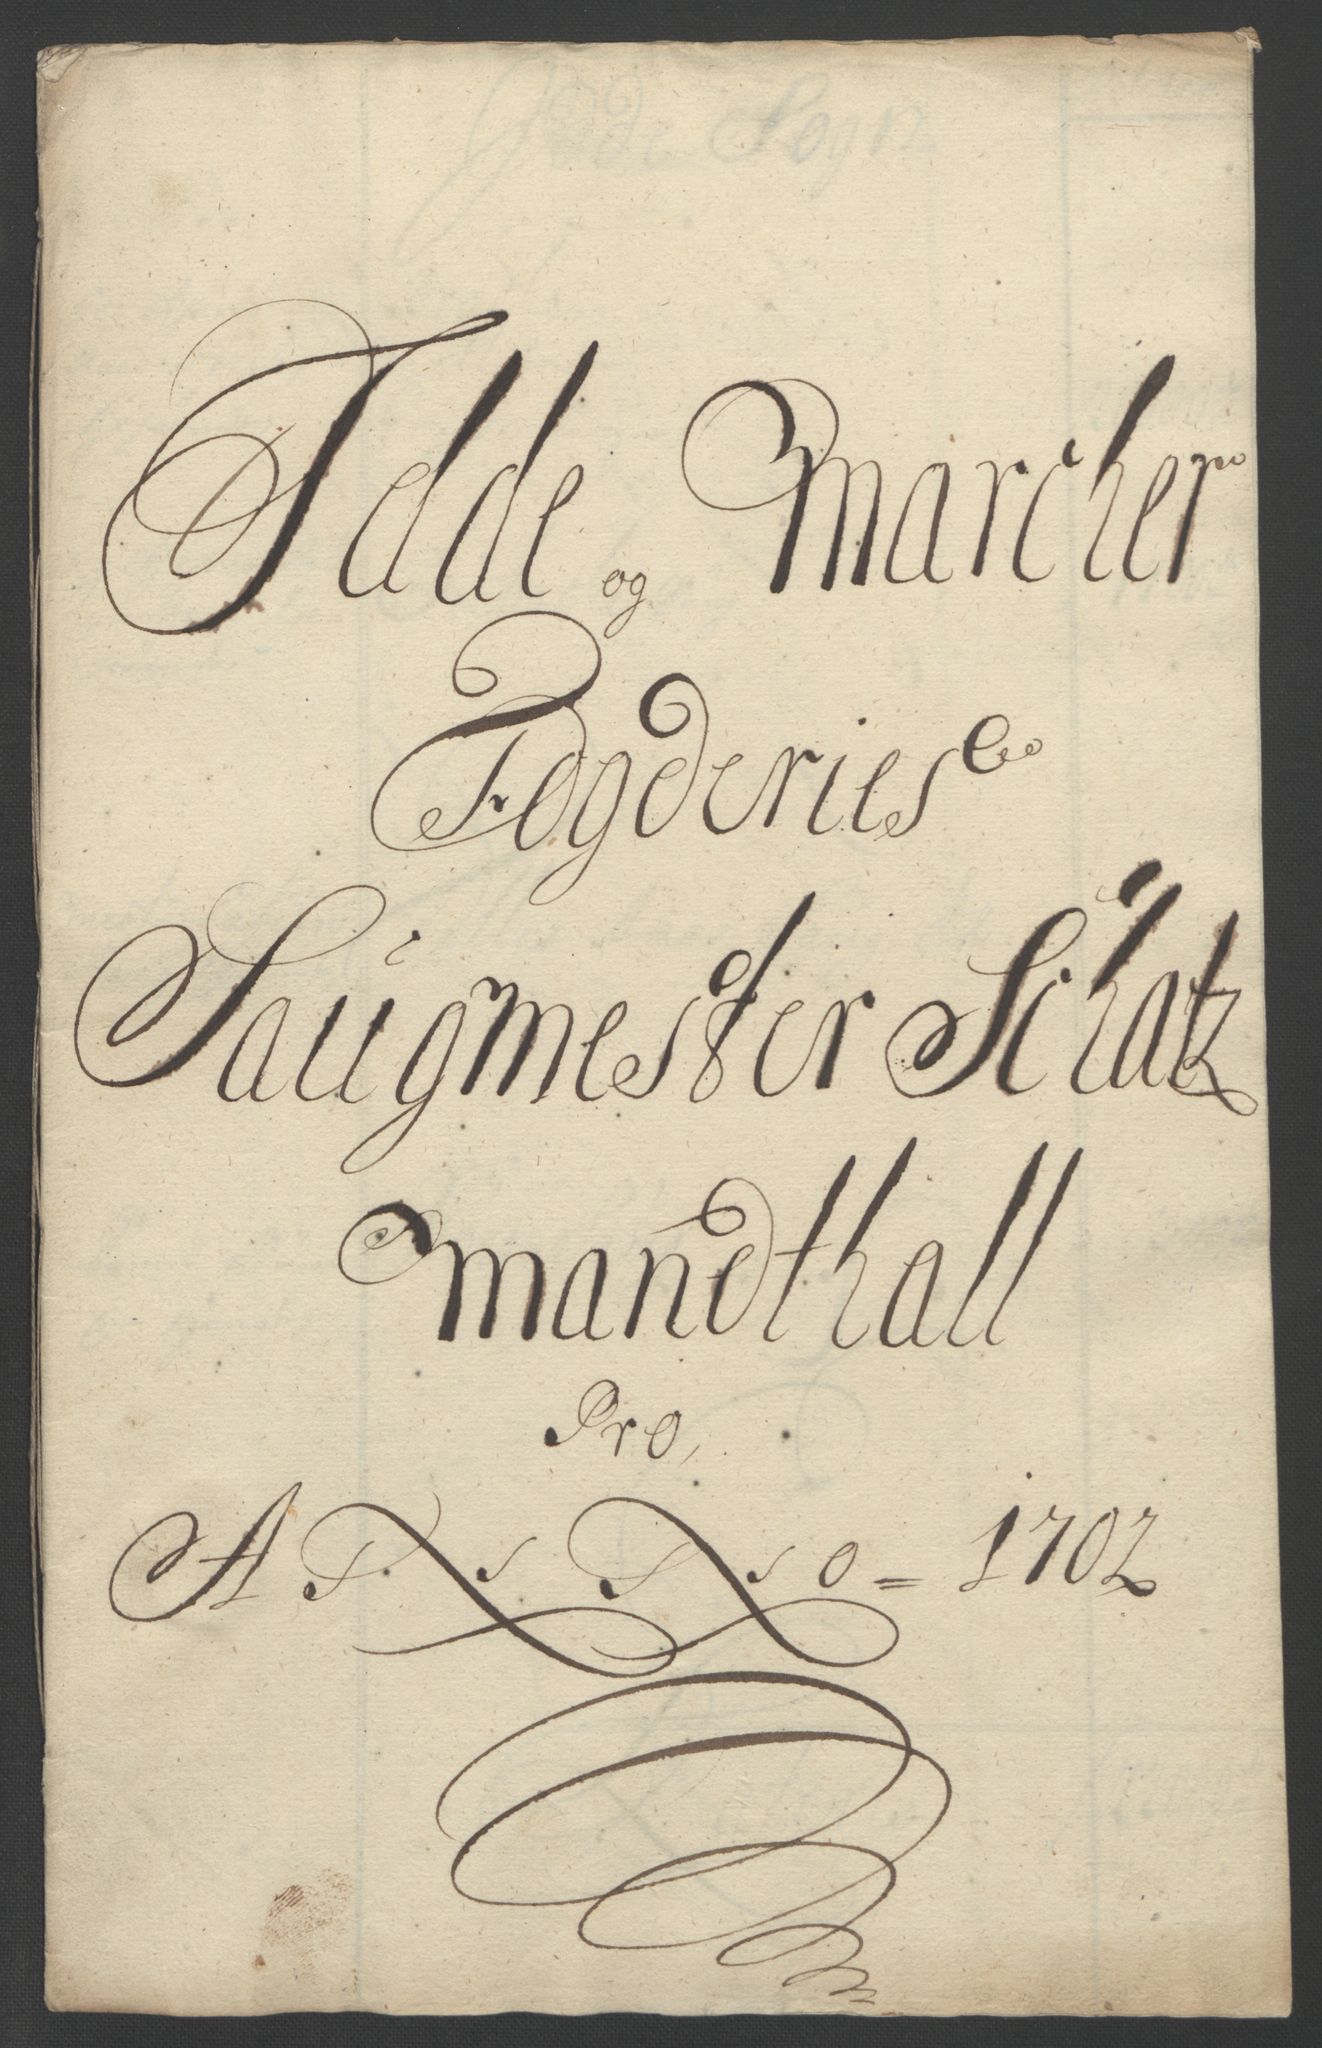 Idde og Marcker
Fogderies
Saugmester Schatz
Mandthall
Pro,
A o = 1702